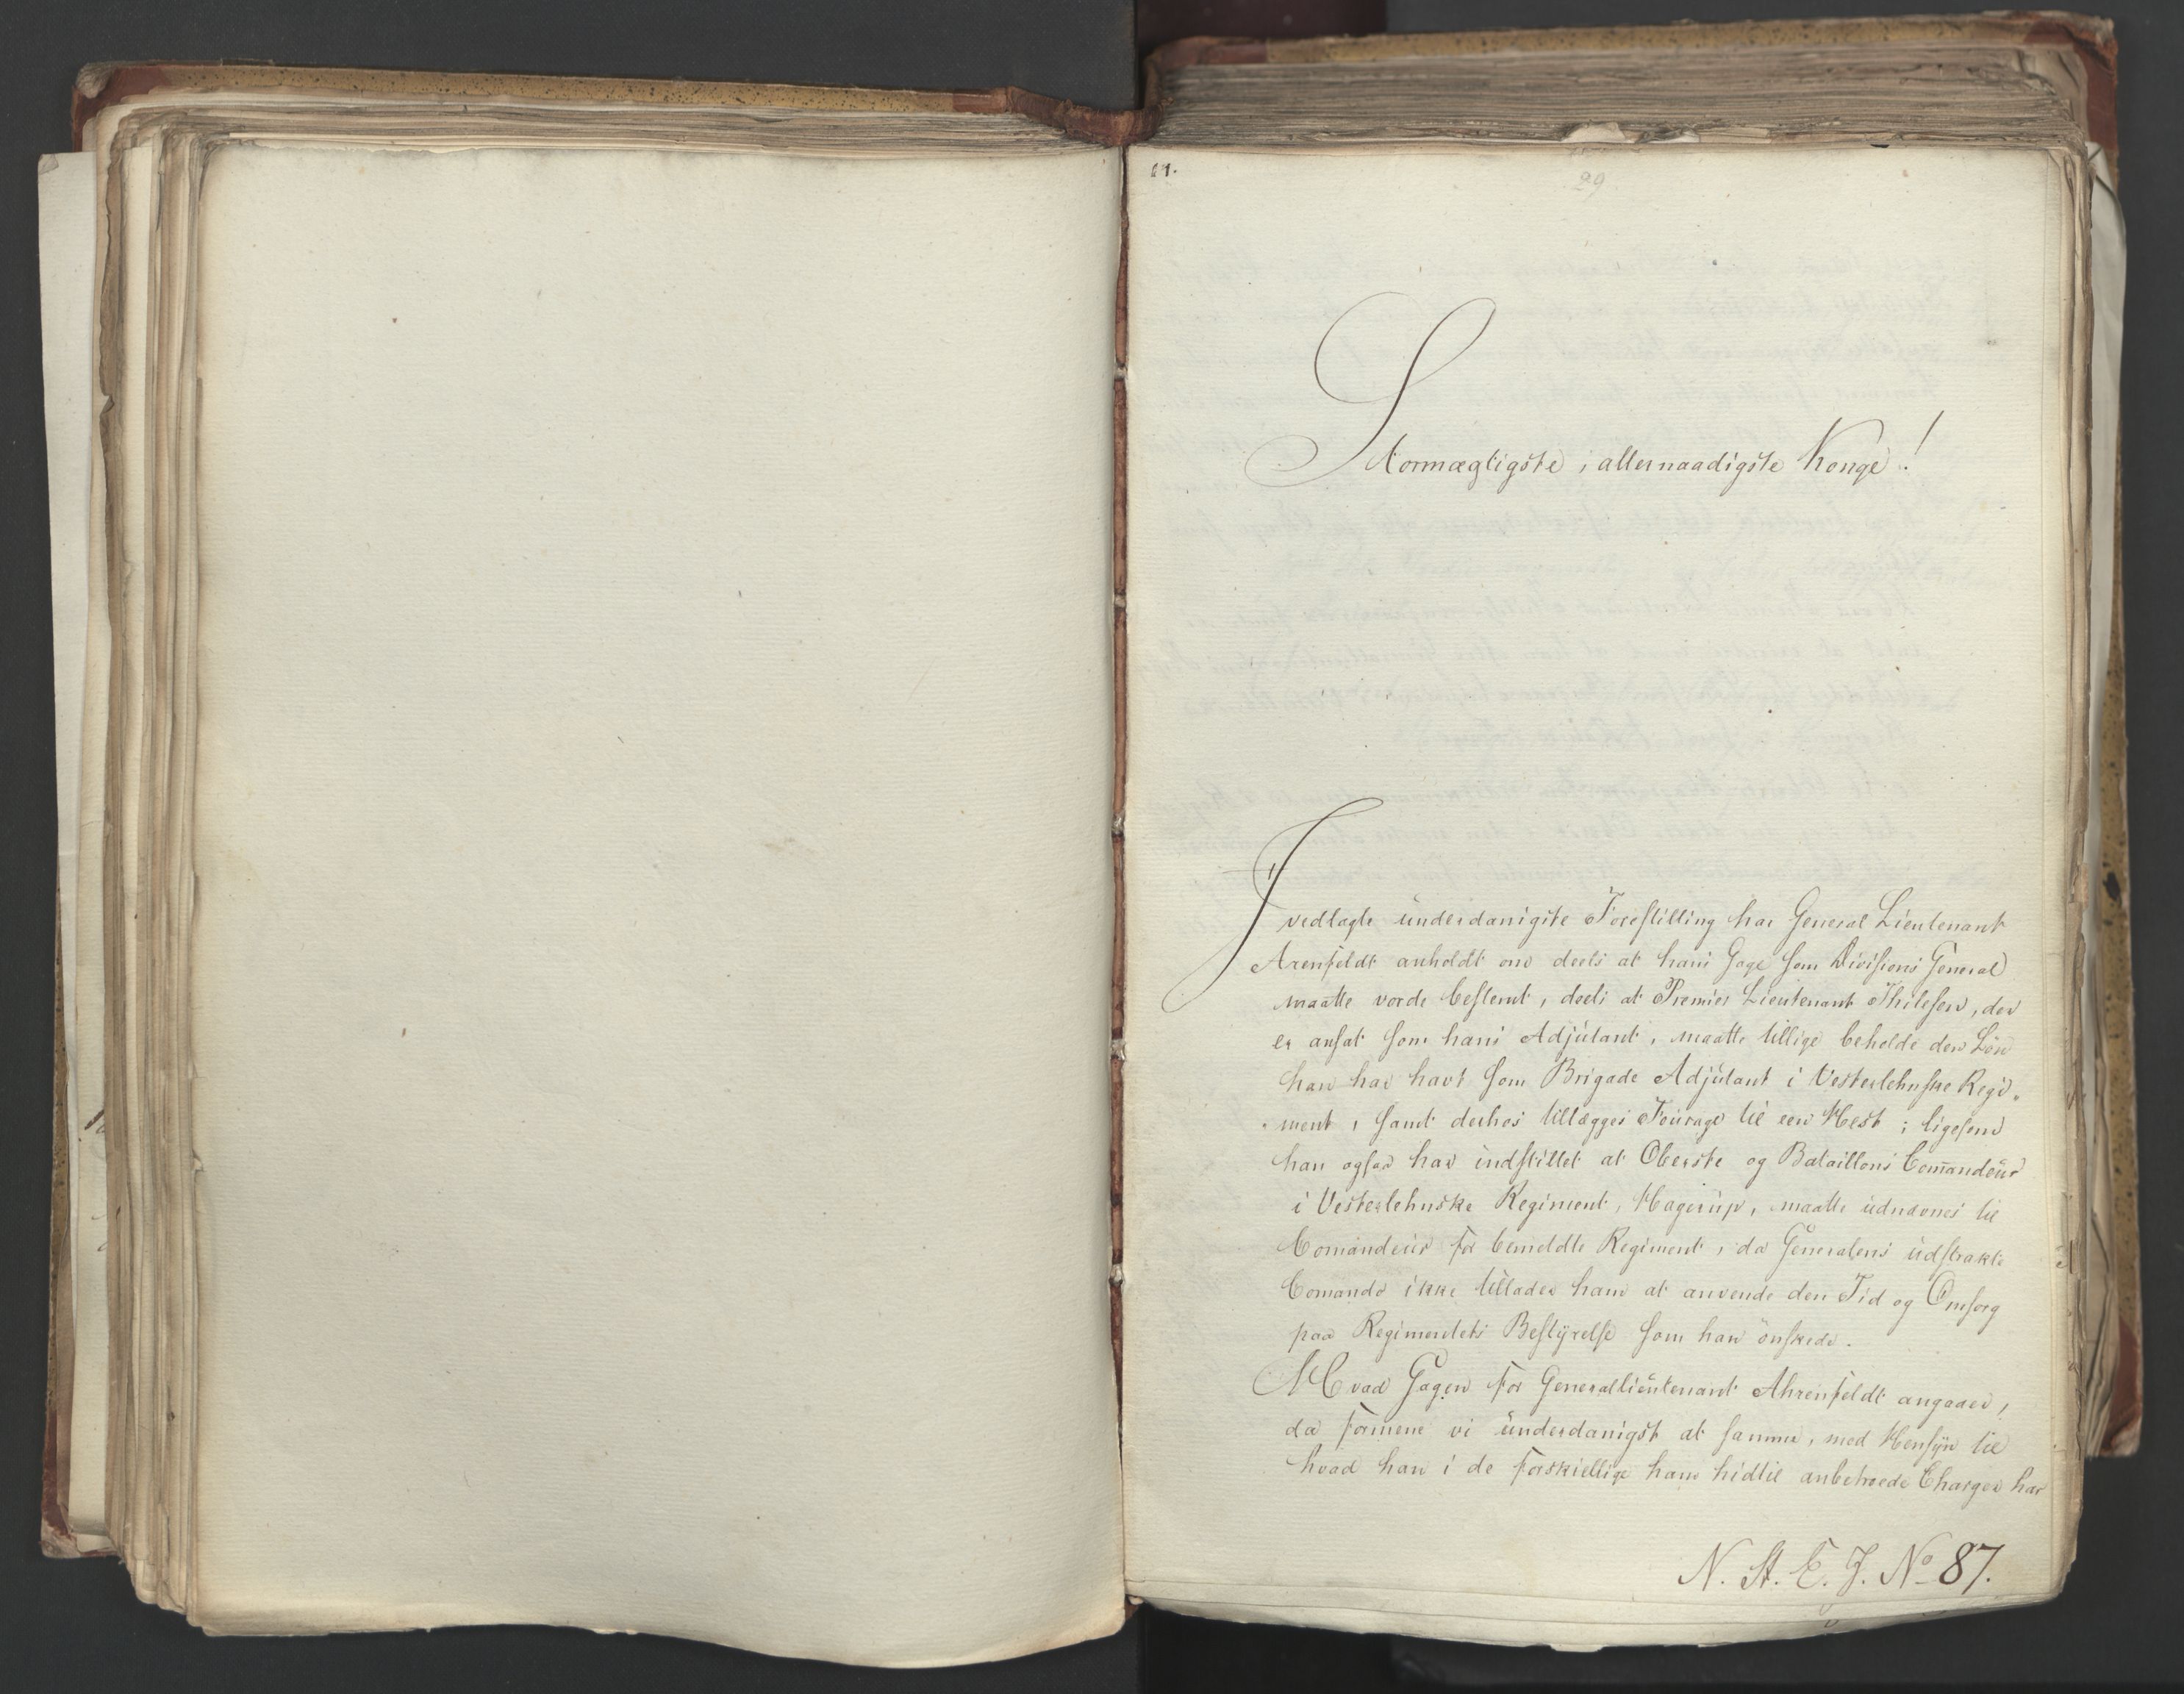 29
Stormægtigste, allernaadigste Konge!
I vedlagte underdanigste Forestilling har General Lieutenant
Arenfeldt anholdt om deels at hans Gage som Divisions General
maatte vorde bestemt, deels at Premier Lieutenant Thilesen, der
er ansat som hans Adjutant, maatte tillige beholde den Lön
han har havt som Brigade Adjutant i Vesterlehnske Regi-
-ment, samt derhos tillægges Fourage til een Hest; ligesom
han ogsaa har indstillet at Oberste og Bataillons Com̅andeur
i Vesterlehnske Regiment, Hagerup, maatte udnævnes til
Comandeur for bemeldte Regiment, da Generalens udstrakte
Comando ikke tillader ham at anvende den Tid og Omsorg
paa Regimentets Bestyrelse som han önskede.
Hvad Gagen for Generallieutenant Ahrenfeldt angaaer,
da formene vi underdanigst at samme, med Hensyn til
hvad han i de forskiellige ham hidtil anbetroede Charger har
N. St. E. J. No 87.